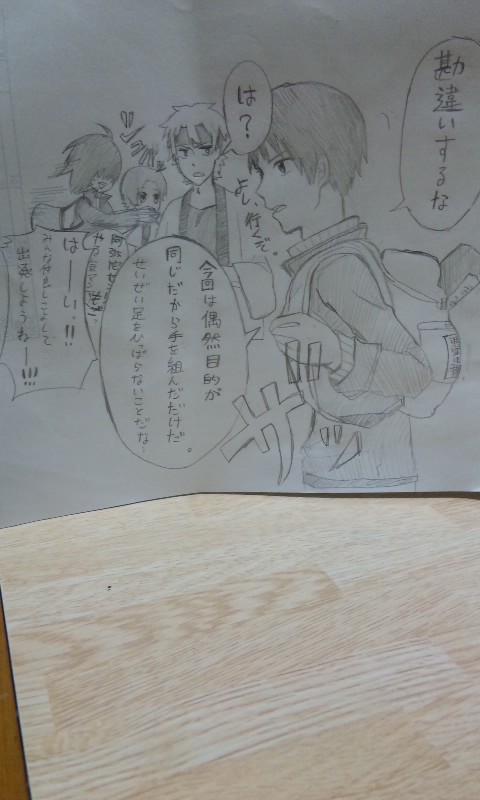 勘違いするな
は？
よし、行くぞ。
今回は偶然目的が
同じだから手を組んだだけだ。
せいぜい足をひっぱらないことだな…
ザッ
はーい。!!
みんな仲良しこよしで
出発しようねー!!!